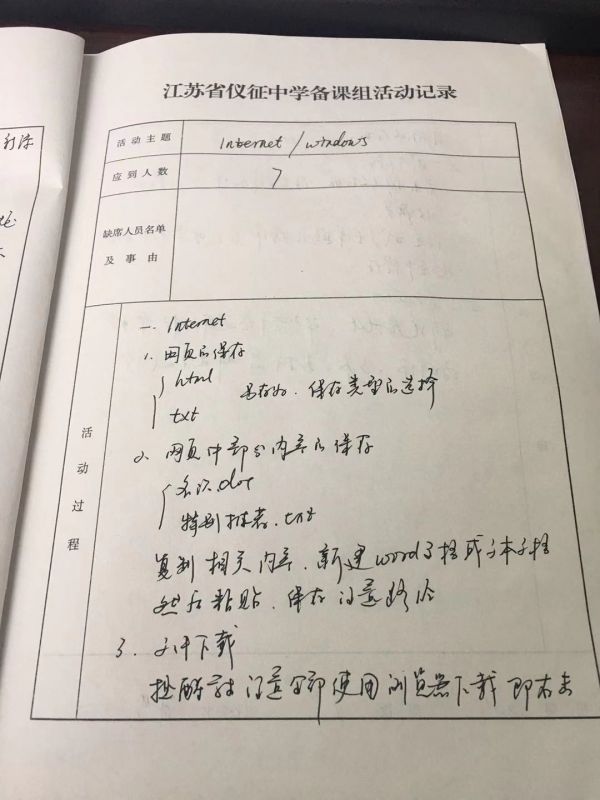 江苏省仪征中学备课组活动记录
活动主题
Internet / windows
应到人数
7
缺席人员名单
及事由
活动过程
一. Internet
1. 网页的保存
html
另存为. 保存类型的选择
txt
2. 网页中部分内容的保存
名次.doc
特别推荐.txt
复制相关内容. 新建word文档或文本文档
然后粘贴. 保存 设置路径
3. 文件下载
提醒 设置全部使用浏览器下载 即右击